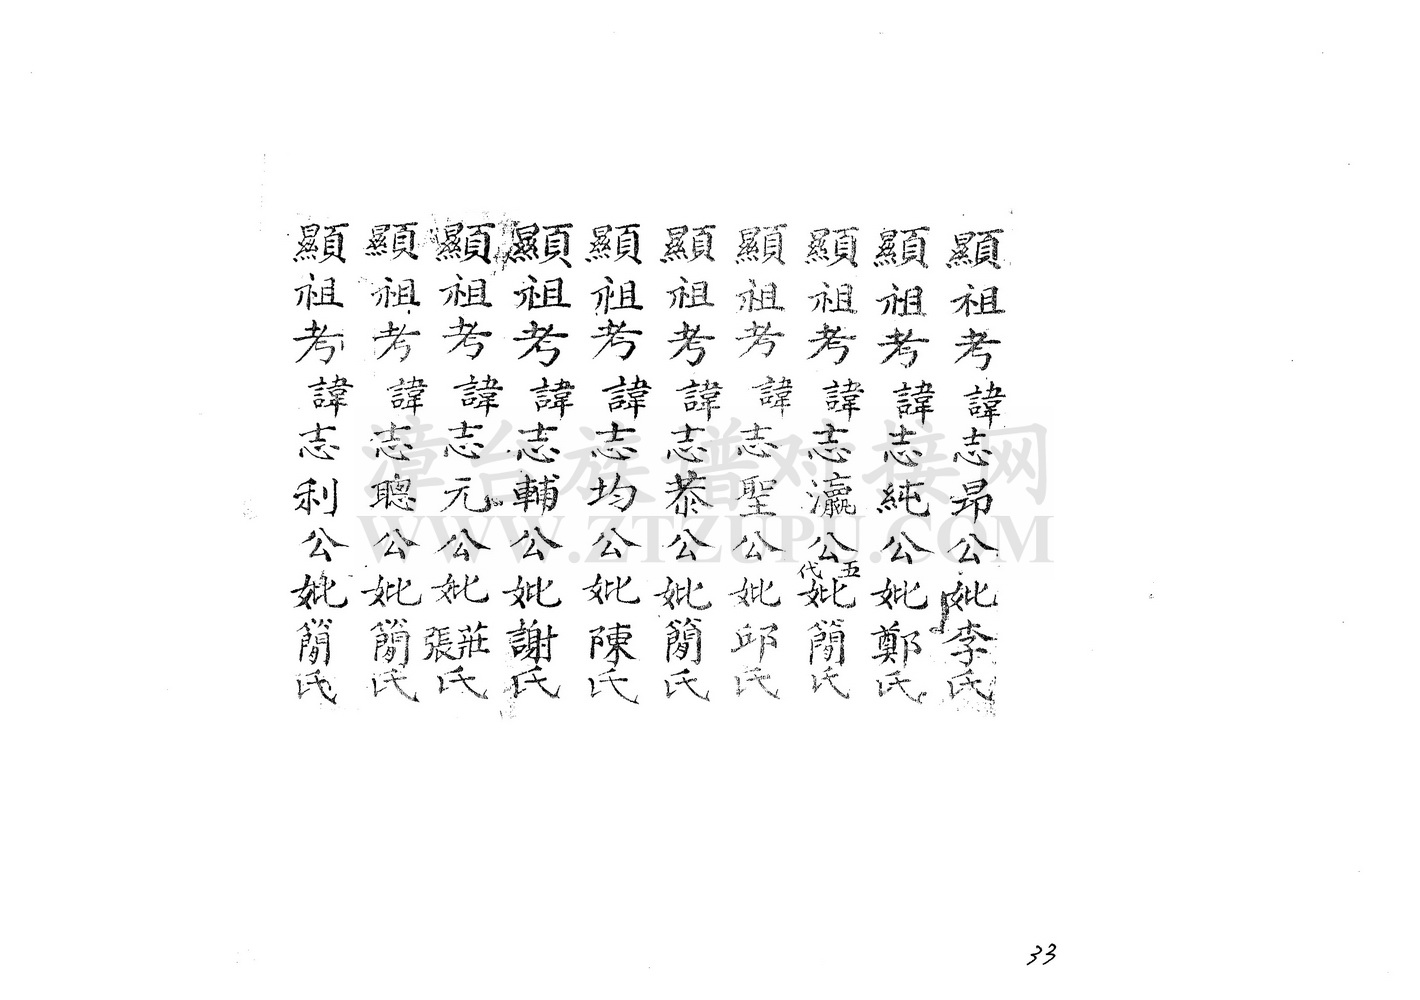 顯祖考諱志昂公妣李氏
顯祖考諱志純公妣鄭氏
顯祖考諱志瀛公五代妣簡氏
顯祖考諱志聖公妣邱氏
顯祖考諱志恭公妣簡氏
顯祖考諱志均公妣陳氏
顯祖考諱志輔公妣謝氏
顯祖考諱志元公妣莊張氏
顯祖考諱志聰公妣簡氏
顯祖考諱志利公妣簡氏
漳台族谱对接网
WWW.ZTZUPU.COM
33